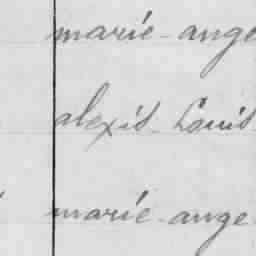 marie-ange
alexis Louis
marie-ange